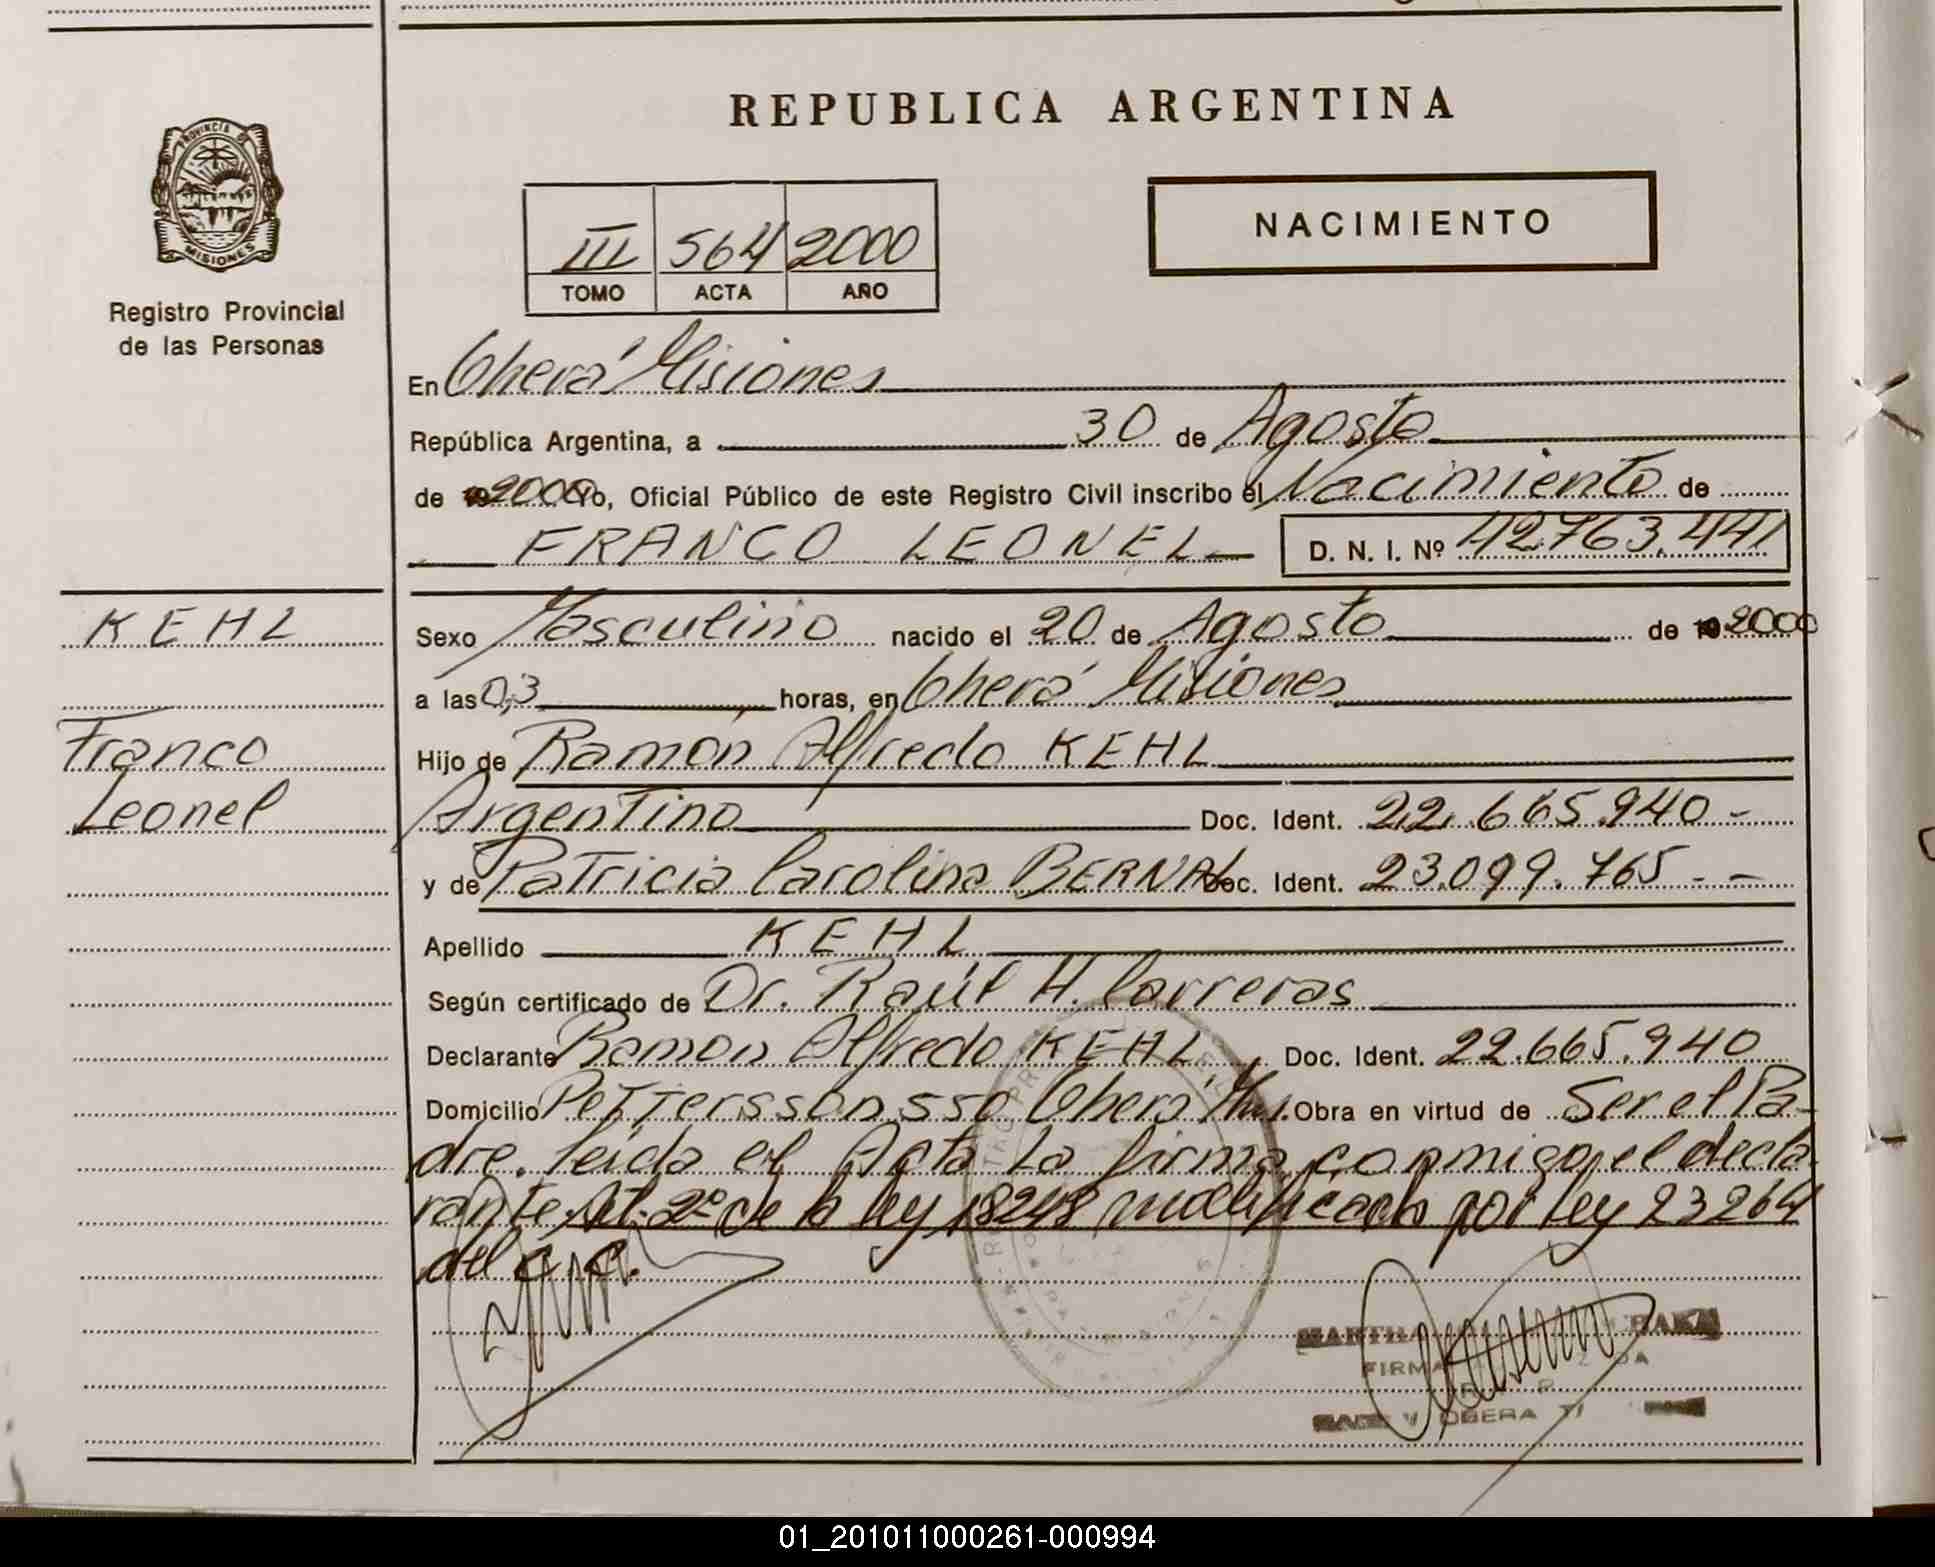 REPUBLICA ARGENTINA
PROVINCIA D MISIONES
NACIMIENTO
III 564 2000
TOMO ACTA AÑO
Registro Provincial
de las Personas
En Oberá Misiones
República Argentina, a 30 de Agosto
de 19 2000 Yo, Oficial Público de este Registro Civil inscribo el Nacimiento de
FRANCO LEONEL D. N. I. Nº 42.763.441
KEHL
Franco
Leonel
Sexo Masculino nacido el 20 de Agosto de 19 2000
a las 0,3 horas, en Oberá Misiones
Hijo de Ramón Alfredo KEHL
Argentino Doc. Ident. 22.665.940-
y de Patricia Carolina BERNAL Doc. Ident. 23.099.765--
Apellido KEHL
Según certificado de Dr. Raúl H. Carreras
Declarante Ramon Alfredo KEHL Doc. Ident. 22.665.940
Domicilio Pettersson 550 Oberá Mnes. Obra en virtud de Ser el Pa-
dre. leida el Acta La firma conmigo el decla-
rante Art. 2º de la ley 18248 modificada por ley 23264
del C. C.
MARTHA
FIRMA
OBERA
01_201011000261-000994